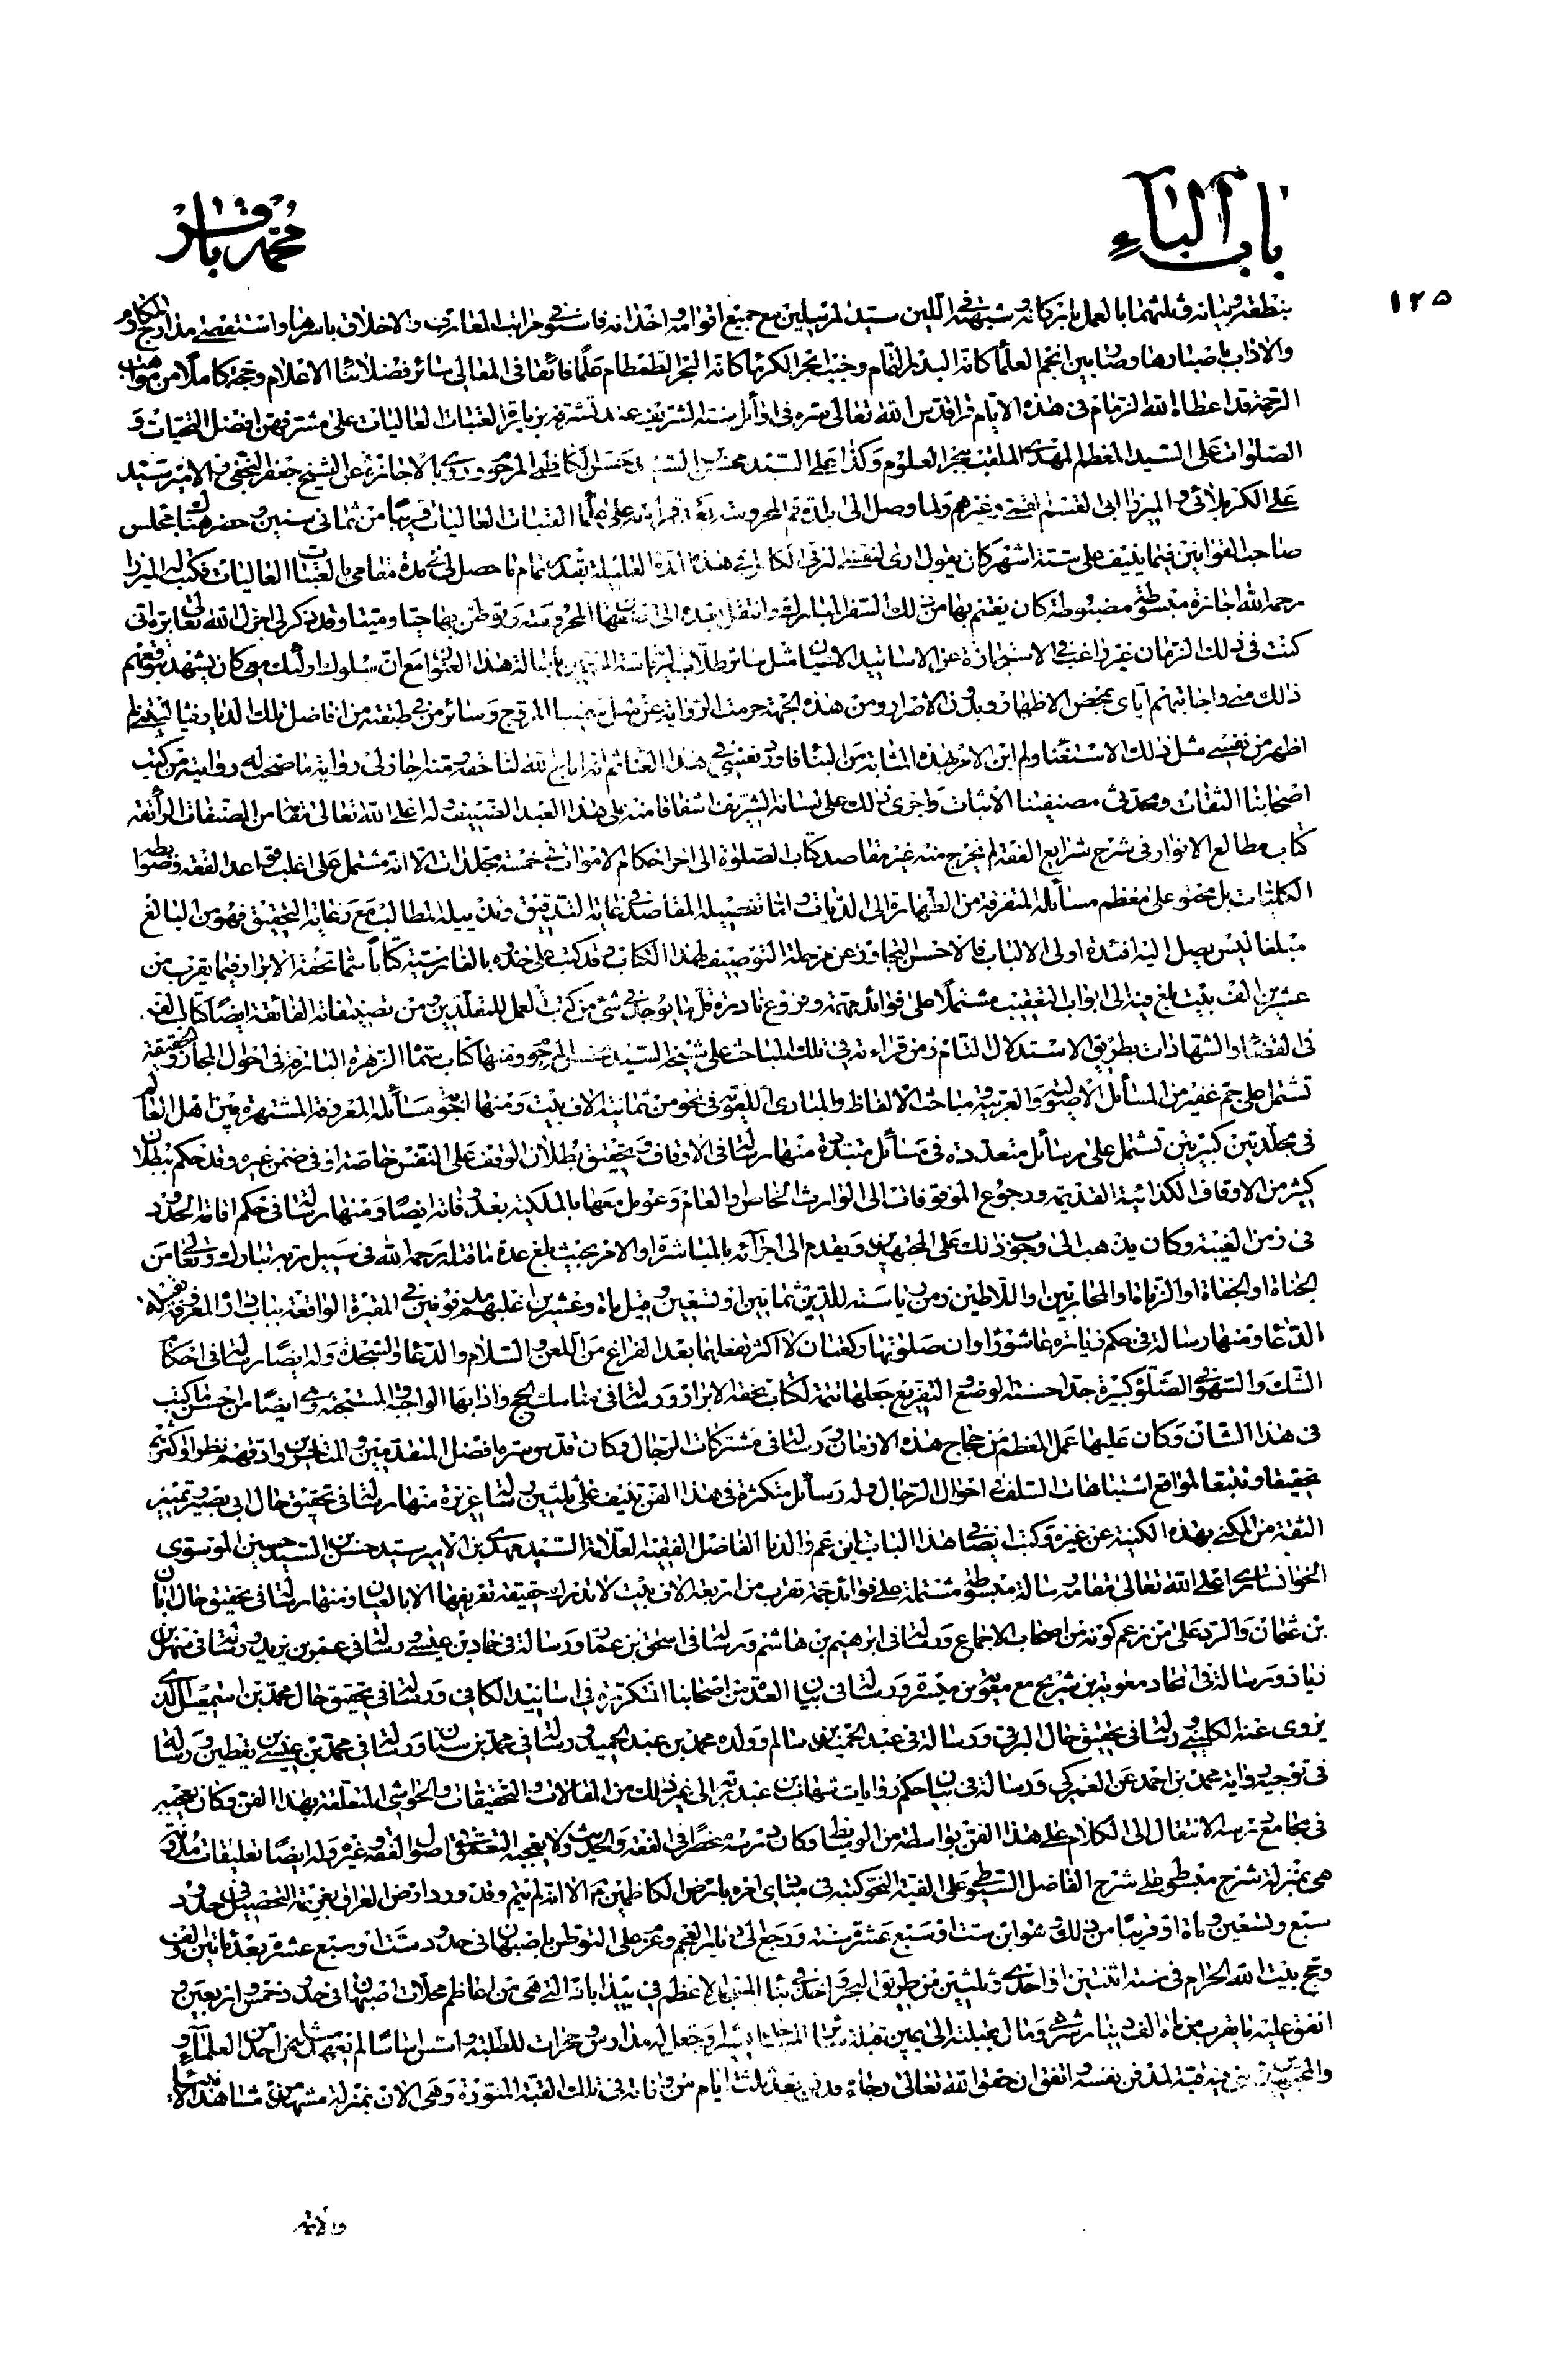 باب الباء
محمد باقر
١٢٥
بمنطقه وبيانه وثلثهما بالعمل باركانه وشبهته في اللين سيد المرسلين مع جميع اقوامه واخدانه فاستوفى مراتب المعارف والاخلاق باسرها واستقصى مدارج المكارم
والاداب باصبارها وصار بين انجم العلماء كانه البدر التمام وجنب ابحر الكرماء كانه البحر الطمطام علما فائقا في المعالي سائر فضلائنا الاعلام وحجة كاملا من مواهب
الرحمة قد اعطاه الله الزمام في هذه الايام قرأ قدس الله تعالى سره في اوائل سنه الشريف عند تشرفه بزيارة العتبات العاليات على مشرفهن افضل التحيات و
الصلوات على السيد المعظم المهدي الملقب ببحر العلوم وكذا على السيد محسن السيد حسن الكاظمي المرحوم وروى بالاجازة عن الشيخ جعفر النجفي والامير سيد
على الكربلائي والميرزا ابى القسم القمي وغيرهم ولما وصل الى بلدة قم المحروسة بعد قرائته على علماء العتبات العاليات قريبا من ثماني سنين وحضر هنالك مجلس
صاحب القوانين فيما ينيف على ستة اشهر كان يقول ارى لنفسي الترقي الكامل في هذه المدة القليلة بقدر تمام ما حصل لي في مدة مقامي بالعتبات العاليات فكتب له الميرزا
رحمه الله اجازة مبسوطة مضبوطة كان يغتنم بها من ذلك السفر المبارك وانتقل بعده الى اصفهان المحروسة وتوطن بها حيا وميتا وقد ذكر لي اعزل الله تعالى بره اني
كنت في ذلك الزمان غير راغب في الاستجازة عن الاساتيد الاعيان مثل سائر طلاب الرئاسة بامثاله هذا العنوان مع ان سلوك اولئك معي كان يشهد بتوقعهم
ذلك مني واجابتهم اياى بمحض الاظهار وبدون الاصرار ومن هذه الجهة حرمت الرواية عن مثل شيخنا المروج وسائر من في طبقته من افاضل تلك الديار فياليتني لم
اظهر من نفسي مثل ذلك الاستغناء ولم ابن الامر بهذه المثابة من البناء
اصحابنا الثقات ومحدثى مصنفينا الاثبات واجرى ذلك على لسانه الشريف اشفاقا منه على هذا العبد الضعيف وله اعلى الله تعالى مقامه من المصنفات الرائقة
كتاب مطالع الانوار في شرح شرايع الفقه لم يخرج منه غير مقاصد كتاب الصلوة الى اخر احكام الاموات في خمسة مجلدات الا انه مشتمل على اغلب قواعد الفقه وضوابطه
الكليات بل محتو على معظم مسائله المتفرقة من الطهارة الى الديات واما تفصيله المقاصد في غاية التدقيق وتذييله المطالب مع رعاية التحقيق فهو من المبالغ
مبلغا ليس يصل اليه افئدة اولى الالباب فالاحسن التجاوز عن مرحلة التوصيف لهذا الكتاب وقد كتب على حذوه بالفارسية كتابا سماه تحفة الابرار فيما يقرب من
عشرين الف بيت بلغ فيه الى ابواب التعقيب مشتملا على فوائد مهمة وفروع نادرة قل ما يوجد في شئ من كتب العمل للمقلدين ومن تصنيفاته الفائقة ايضا كتاب الفه
في القضاء والشهادات بطريق الاستدلال التام زمن قراءته في تلك المباحث على شيخه السيد محسن المرحوم ومنها كتاب سماه الزهرة البارقة في احوال المجاز والحقيقة
تشتمل على جم غفير من المسائل الاصولية والعربية ومباحث الالفاظ والمبادى اللغوية في نحو من ثمانية الاف بيت ومنها اجوبة مسائله المعروفة المشتهرة بين اهل العالم
في مجلدين كبيرين تشتمل على رسائل متعددة في مسائل متبددة منها رسالة في الاوقاف وتحقيق بطلان الوقف على النفس خاصة او في ضمن غيره وقد حكم ببطلان
كثير من الاوقاف الكذائية القديمة ورجوع الموقوفات الى الوارث الخاص والعام وعومل معها بالملكية بعد وفاته ايضا ومنها رسالة في حكم اقامة الحدود
في زمن الغيبة وكان يذهب الى وجوب ذلك على المجتهدين ويقدم الى اجرائه بالمباشرة او الامر بحيث بلغ عدة ما قتله رحمه الله في سبيل ربه تبارك وتعالى من
الجناة او الجفاة او الزناة او المحاربين واللاطين زمن رياسته للدين ثمانين او تسعين وقيل مأة وعشرين اغلبهم مدفونين في المقبرة الواقعة بباب داره المعروفة بقبلة
الدعاء ومنها رسالة في حكم زيارة عاشوراء وان صلوتها ركعتان لا اكثر تفعلهما بعد الفراغ من اللعن والسلام والدعاء والسجدة وله ايضا رسالة في احكام
الشك والسهو في الصلوة كبيرة جدا حسنة الوضع والتفريع جعلها تتمة لكتاب تحفة الابرار ورسالة في مناسك الحج وادابها الواجبة والمستحبة وهي ايضا من احسن ما كتب
في هذا الشأن وكان عليها عمل المعظم من حجاج هذه الازمان ورسالة في مشتركات الرجال وكان قدس سره افضل المتقدمين والمتأخرين وادقهم نظرا واكثرهم
تحقيقا وتتبعا لمواقع اشتباهات السلف في احوال الرجال وله رسائل متكثرة في هذا الفن تنيف على ثلثين رسالة عزيزة منها رسالة في تحقيق حال ابى بصير وتمييز
الثقة من المكنى بهذه الكنية عن غيره وكتب ايضا في هذا الباب ابن عم والدنا الفاضل الفقيه العلامة السيد مهدى بن الامير سيد حسن بن السيد حسين الموسوي
الخوانساري اعلى الله تعالى مقامه رسالة مبسوطة مشتملة على فوائد جمة تقرب من اربعة الاف بيت لا تدرك حقيقة تعريفها الا بالعيان ومنها رسالة في تحقيق حال ابان
بن عثمان والرد على من زعم كونه من اصحاب الاجماع ورسالة في ابرهيم بن هاشم ورسالة في اسحق بن عمار ورسالة في حماد بن عيسى ورسالة في عمر بن يزيد ورسالة في سهل بن
زياد ورسالة في اتحاد معوية بن شريح مع معوية بن ميسرة ورسالة في بيان العدة من اصحابنا المتكررة في اسانيد الكافي ورسالة في تحقيق حال محمد بن اسمعيل الذي
يروى عنه الكليني ورسالة في تحقيق حال البرقي ورسالة في عبد الحميد بن سالم وولده محمد بن عبد الحميد ورسالة في محمد بن سنان ورسالة في محمد بن عيسى بن يقطين ورسالة
في توجيه رواية محمد بن احمد عن العمركي ورسالة في بيان حكم روايات شهاب بن عبد ربه الى غير ذلك من المقالات والتحقيقات والحواشي المتعلقة بهذا الفن وكان يعجبه
في مجامع درسه الانتقال الى الكلام على هذا الفن بواسطة من الوسائط وكان درسه منحصرا في الفقه والحديث ولا يعجبه التعمق في اصول الفقه وغيره وله ايضا تعليقات مدونة
هي بمنزلة شرح مبسوط على شرح الفاضل السيوطي على الفية النحو كتبه في مبادى امره بارض الكاظمين ع الا انه لم يتم وقد ورد ارض العراق بعزيمة التحصيل في حدود
سبع وتسعين ومأة او قريبا من ذلك وهو ابن ست او سبع عشرة سنة ورجع الى ديار العجم وعزم على التوطن باصبهان في حدود ست او سبع عشر بعد مأتين والف
وحج بيت الله الحرام في سنة اثنتين او احدى وثلثين من طريق البحر واخذ في بناء المسجد الاعظم في بيدآباد التي هي من اعاظم محلات اصبهان في حدود خمس واربعين و
انفق عليه ما يقرب من مأة الف دينار شرعي ومال بقبلته الى يمين قبلة سائر المساجد يسيرا وجعل له مدارس وحجرات للطلبة واسس اساسا لم يعهد مثله من احد من العلماء و
والمجتهدين وبنى فيه قبة لمدفن نفسه واتفق ان حقق الله تعالى رجاءه ودفن بعد ثلثة ايام من وفاته في تلك القبة المنورة وهي الان بمنزلة مشهد من مشاهد الانبياء